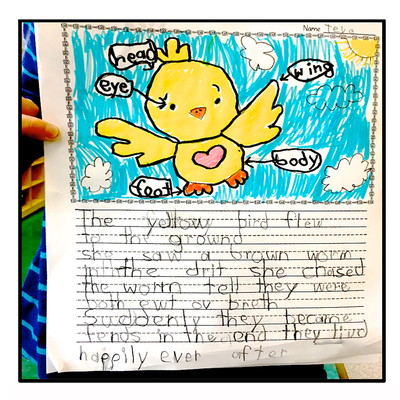 Name Teya
head
eye
wing
body
feet
The yellow bird flew
to the ground
she saw a brown worm
in the drit she chased
the worm tell they were
both ewt ov breth
Suddenly they became
fends in the end they livd
happily ever after